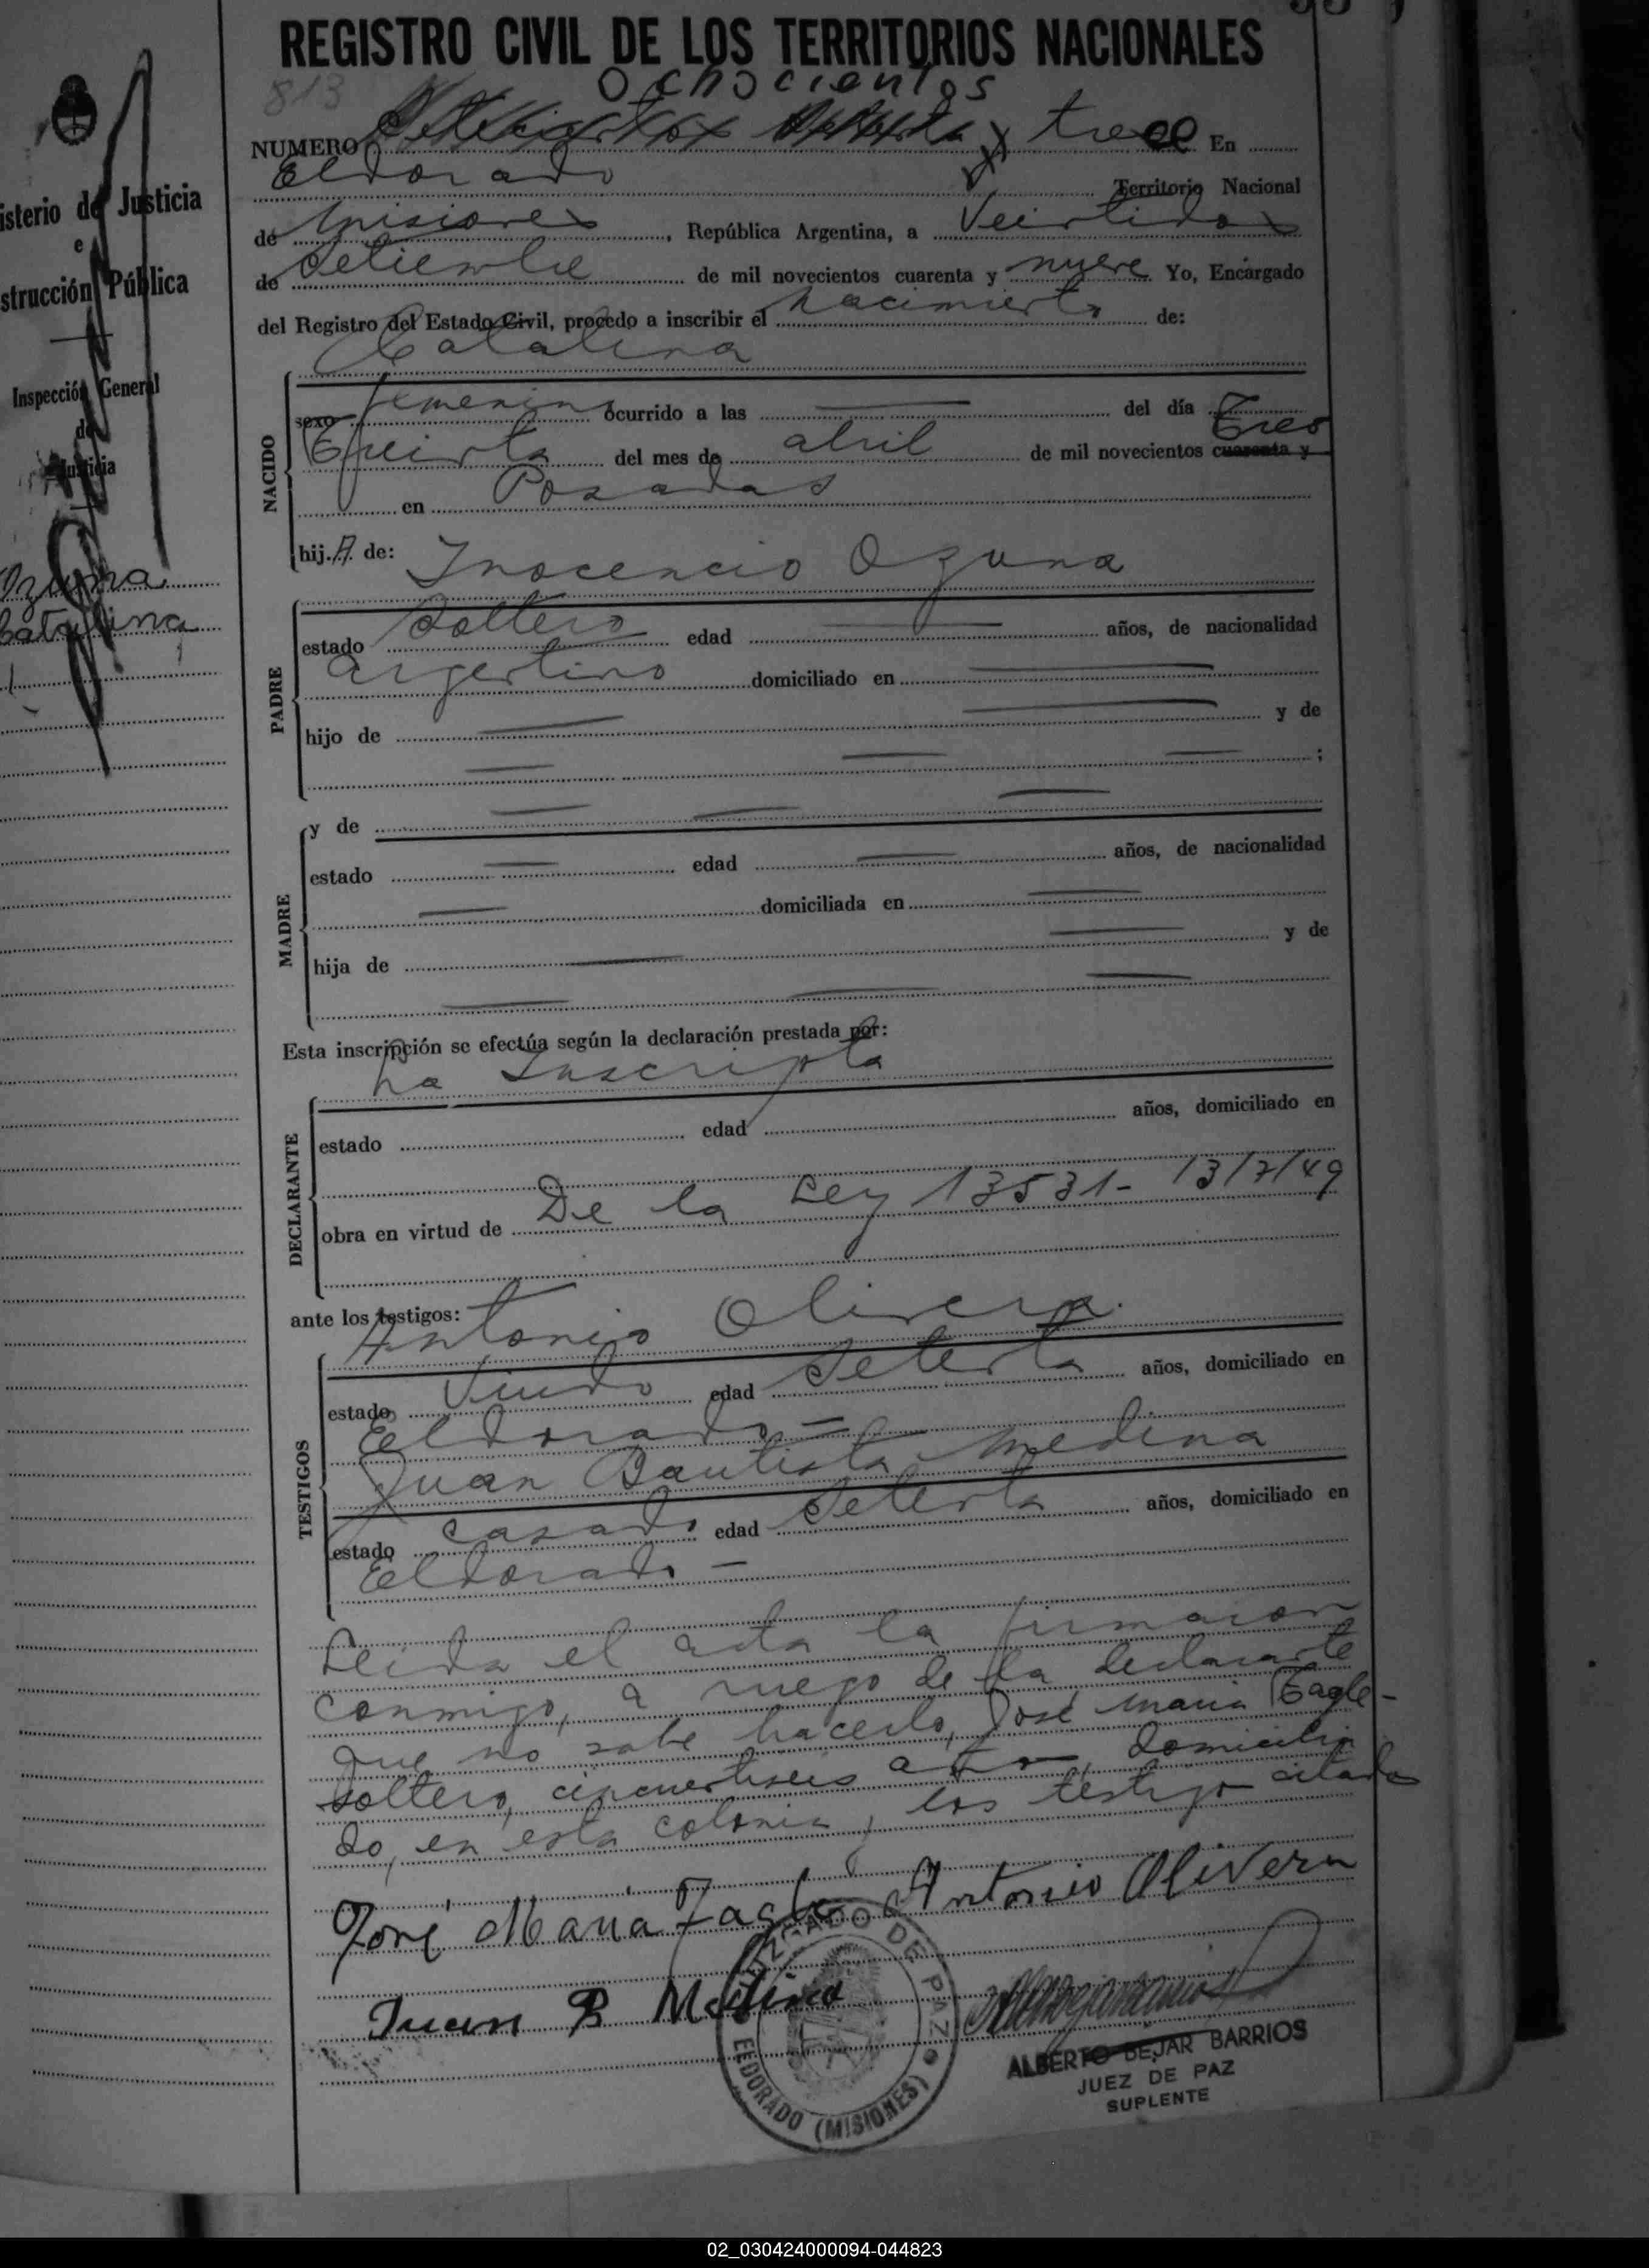 REGISTRO CIVIL DE LOS TERRITORIOS NACIONALES
813
Ochocientos
NUMERO y trece En
Eldorado Territorio Nacional
de Misiones, República Argentina, a Veintidos
de Setiembre de mil novecientos cuarenta y nueve Yo, Encargado
del Registro del Estado Civil, procedo a inscribir el nacimiento de:
Catalina
NACIDO
sexo femenino ocurrido a las del día Tres
del mes de abril de mil novecientos cuarenta y
Treinta
en Posadas
hija de: Inocencio Ozuna
PADRE
estado Soltero edad años, de nacionalidad
argentino domiciliado en
hijo de y de
;
MADRE
y de
estado edad años, de nacionalidad
domiciliada en
hija de y de
Esta inscripción se efectúa según la declaración prestada por:
La Inscripta
DECLARANTE
estado edad años, domiciliado en
obra en virtud de De la Ley 13531- 13/7/49
ante los testigos:
Antonio Olivera.
TESTIGOS
estado Viudo edad Setenta años, domiciliado en
Eldorado-
Juan Bautista Medina
estado casado edad Setenta años, domiciliado en
Eldorado-
Leida el acta la firmaron
conmigo, a ruego de la declarante
que no sabe hacerlo, José Maria Tagle-
soltero, cincuentiseis años, domicilia
do, en esta colonia y los testigo citados
José Maria Tagle Antonio Olivera
Juan B Medina
JUZGADO DE PAZ
ELDORADO (MISIONES)
ALBERTO BEJAR BARRIOS
JUEZ DE PAZ
SUPLENTE
isterio de Justicia
e
strucción Pública
Inspección General
de
Justicia
Ozuna
Catalina
02_030424000094-044823